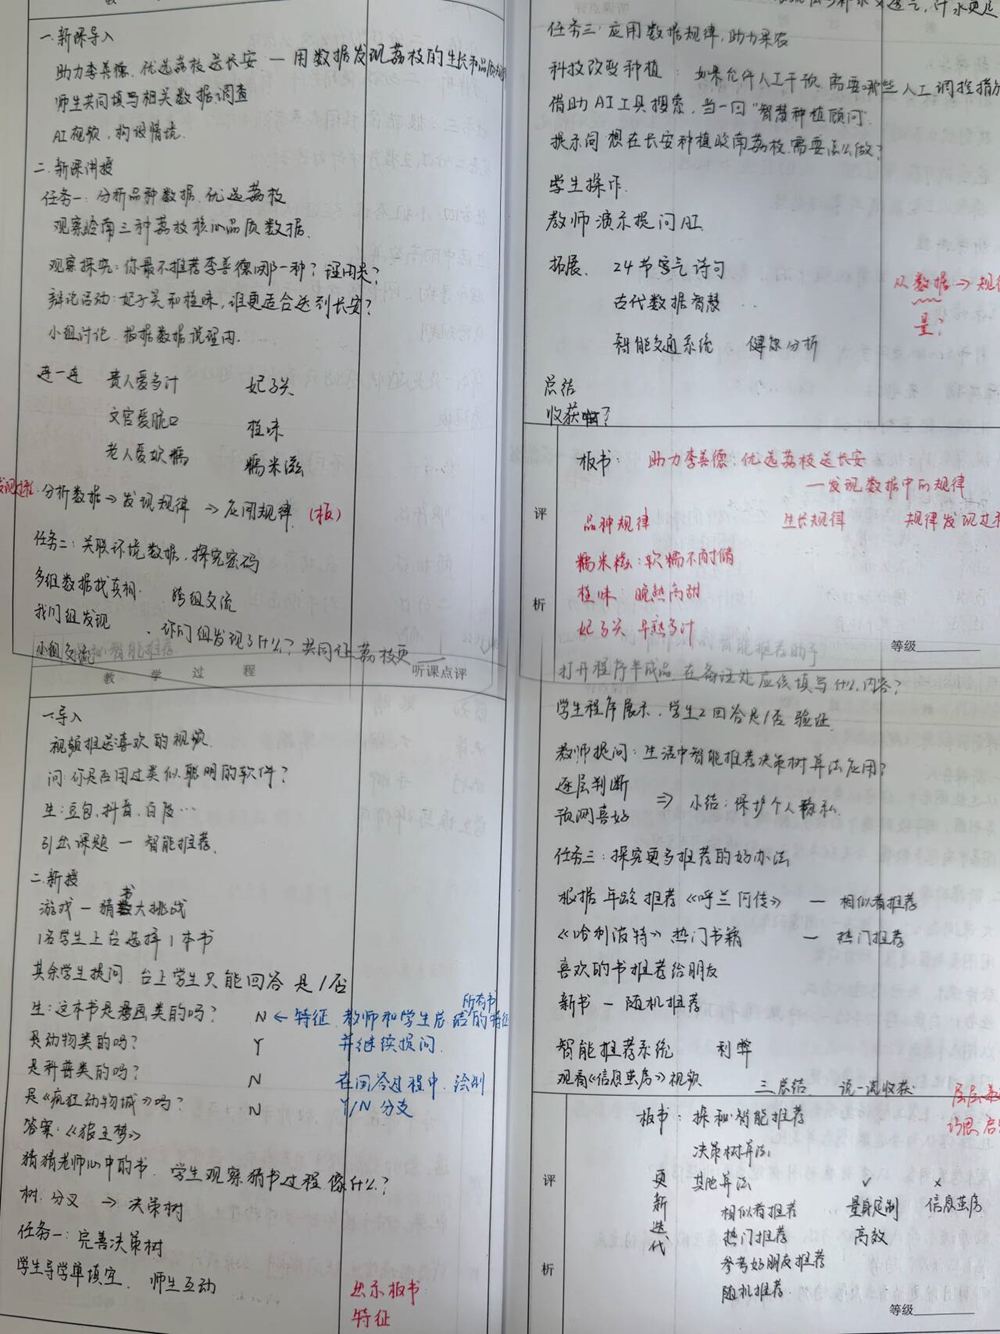 一.新课导入
助力李善德,优选荔枝送长安 — 用数据发现荔枝的生长和品质
师生共同填写相关数据调查
AI视频,构设情境
二.新课讲授
任务一:分析品种数据,优选荔枝
观察岭南三种荔枝核心品质数据.
观察探究:你最不推荐李善德哪一种?理由是?
辩论活动:妃子笑和桂味,谁更适合送到长安?
小组讨论 根据数据说理由.
连一连 贵人爱多汁 妃子笑
文官爱脆口 桂味
老人爱软糯 糯米滋
分析数据→发现规律 →应用规律.(板)
任务二:关联环境数据,探究密码
多组数据找真相. 跨组交流
我们组发现 .你们组发现了什么?共同让荔枝更
小组交流
任务三:应用数据规律,助力果农
科技改变种植: 如果允许人工干预,需要哪些人工调控措施
借助AI工具搜索,当一回“智慧种植顾问”
提示问 想在长安种植岭南荔枝,需要怎么做?
学生操作.
教师演示提问AI.
拓展. 24节气诗句
古代数据智慧
智能交通系统 健康分析
从数据→规律
量?
总结
收获?
评
析
板书: 助力李善德:优选荔枝送长安
—发现数据中的规律
品种规律 生长规律 规律发现过
糯米糍:软糯不耐储
桂味:晚熟高甜
妃子笑 早熟多汁
等级
教 学 过 程 听课点评
一.导入
视频推送喜欢的视频.
问:你是否用过类似聪明的软件?
生:豆包,抖音,百度…
引出课题 — 智能推荐.
二.新授
游戏 — 猜书大挑战
1名学生上台选择1本书
其余学生提问,台上学生只能回答 是/否
生:这本书是漫画类的吗? N ← 特征 教师和学生总结所有书的特征
是动物类的吗? Y 并继续提问.
是科普类的吗? N 在问答过程中,绘制
是《疯狂动物城》吗? N Y/N 分支
答案:《狼王梦》
猜猜老师心中的书. 学生观察猜书过程像什么?
树:分叉 → 决策树
任务一:完善决策树
学生导学单填空. 师生互动
出示板书
特征
打开程序半成品 在备注处应该填写什么内容?
学生程序展示,学生2回答是/否 验证
教师提问:生活中智能推荐决策树算法应用?
逐层判断
预测喜好 ⇒ 小结:保护个人隐私
任务三:探究更多推荐的好办法
根据年龄推荐《呼兰河传》 — 相似者推荐
《哈利波特》热门书籍 — 热门推荐
喜欢的书推荐给朋友
新书 — 随机推荐
智能推荐系统 利弊
观看《信息茧房》视频 三.总结 说一说收获
评
析
板书: 探秘智能推荐
决策树算法
更新迭代
其他算法 √ ×
相似者推荐 量身定制 信息茧房
热门推荐 高效
参考好朋友推荐
随机推荐
等级